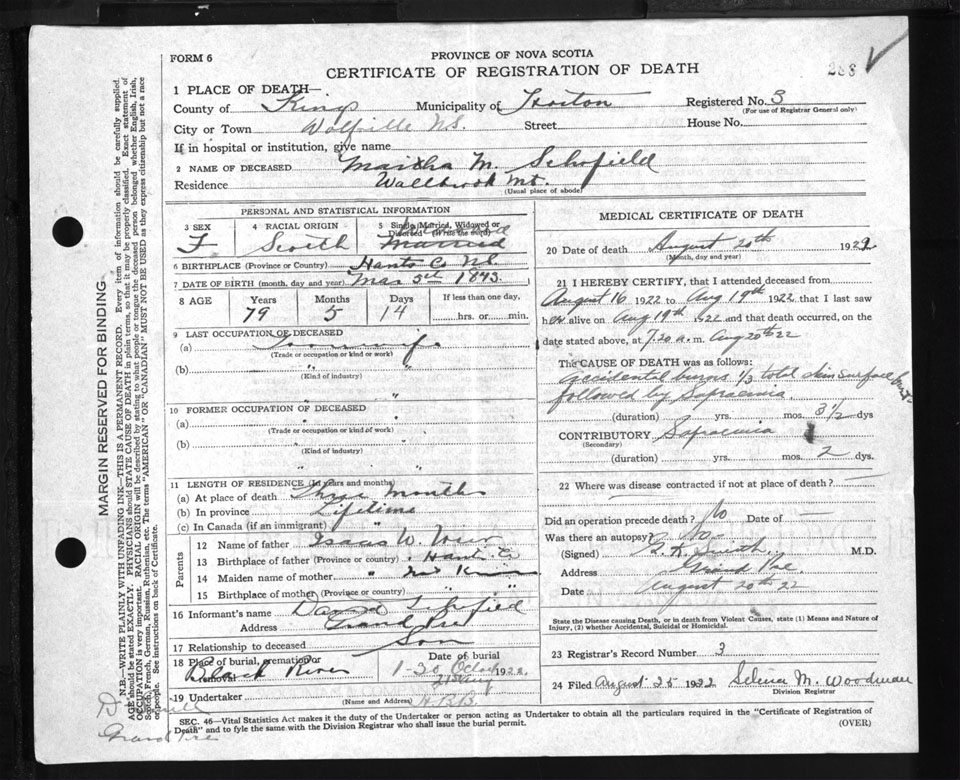 FORM 6
PROVINCE OF NOVA SCOTIA
CERTIFICATE OF REGISTRATION OF DEATH
288
1 PLACE OF DEATH—
County of Kings Municipality of Horton Registered No. 3
(For use of Registrar General only)
City or Town Wolfville N.S. Street House No.
If in hospital or institution, give name
2 NAME OF DECEASED Martha M. Schofield
Residence Wallbrook Mt.
(Usual place of abode)
PERSONAL AND STATISTICAL INFORMATION
3 SEX 4 RACIAL ORIGIN 5 Single, Married, Widowed or
Divorced (Write the word)
F Scotch Married
6 BIRTHPLACE (Province or Country) Hants Co N.S.
7 DATE OF BIRTH (month, day and year) Mar 5th 1843.
8 AGE Years Months Days If less than one day,
79 5 14 hrs. or min.
9 LAST OCCUPATION OF DECEASED
(a) Housewife
(Trade or occupation or kind of work)
(b) "
(Kind of industry)
10 FORMER OCCUPATION OF DECEASED
(a) "
(Trade or occupation or kind of work)
(b) "
(Kind of industry)
"
11 LENGTH OF RESIDENCE (in years and months)
(a) At place of death Three Months
(b) In province Lifetime
(c) In Canada (if an immigrant) "
Parents
12 Name of father Isaac W. Weir
13 Birthplace of father (Province or country) Hants Co
14 Maiden name of mother Not Known
15 Birthplace of mother (Province or country) "
16 Informant's name David Schofield
Address Grand Pre
17 Relationship to deceased Son
18 Place of burial, cremation or Date of burial
Black River 1-30 Oclock 1922
21st Aug
19 Undertaker
(Name and Address) H.B.B.
Grand Pre
MEDICAL CERTIFICATE OF DEATH
20 Date of death August 20th 1922
(Month, day and year)
21 I HEREBY CERTIFY, that I attended deceased from
August 16 1922 to Aug 19th 1922 that I last saw
her alive on Aug 19th 1922 and that death occurred, on the
date stated above, at 7.20 a.m. Aug 20th 22
The CAUSE OF DEATH was as follows:
Accidental burns 1/3 total skin surface
followed by Sapraemia.
(duration) yrs. mos. 3 1/2 dys
CONTRIBUTORY Sapraemia
(Secondary)
(duration) yrs. mos. 2 dys.
22 Where was disease contracted if not at place of death? —
Did an operation precede death? No Date of —
Was there an autopsy? No
(Signed) M.D.
Address Grand Pre
Date August 20th 22
State the Disease causing Death, or in death from Violent Causes, state (1) Means and Nature of
Injury, (2) whether Accidental, Suicidal or Homicidal.
23 Registrar's Record Number 3
24 Filed August 25 1922 Selina M. Woodman
Division Registrar
SEC. 46—Vital Statistics Act makes it the duty of the Undertaker or person acting as Undertaker to obtain all the particulars required in the "Certificate of Registration of
Death" and to fyle the same with the Division Registrar who shall issue the burial permit.
(OVER)
MARGIN RESERVED FOR BINDING.
N.B.—WRITE PLAINLY WITH UNFADING INK—THIS IS A PERMANENT RECORD. Every item of information should be carefully supplied.
AGE should be stated EXACTLY. PHYSICIANS should STATE CAUSE OF DEATH in plain terms, so that it may be properly classified. Exact statement of
OCCUPATION is very important. RACIAL ORIGIN will be described by stating to what people or tongue the deceased person belonged whether English, Irish,
Scotch, French, German, Russian, Ruthenian, etc. The terms "AMERICAN" or "CANADIAN" MUST NOT BE USED as they express citizenship but not a race
of people. See instructions on back of Certificate.